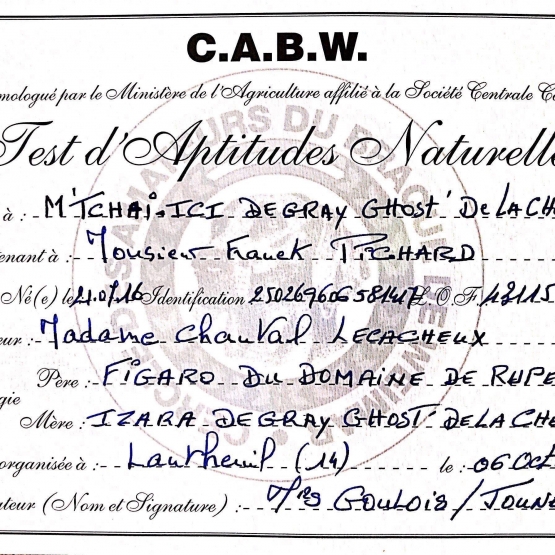 C.A.B.W.
mologué par le Ministère de l'Agriculture affilié à la Société Centrale C
Test d'Aptitudes Naturelle
à : M'TCHAI-ICI DEGRAY GHOST' DE LA CHE
enant à : Monsieur Franck PICHARD
Né(e) le 21.07.16 Identification L.O.F. 48115
eur : Madame Chantal LECACHEUX
Père : FIGARO DU DOMAINE DE RUPE
gie
Mère : IZARA DEGRAY GHOST' DE LA CHE
organisée à : (14) le : 06 Oct
ateur (Nom et Signature) : GOULOIS /